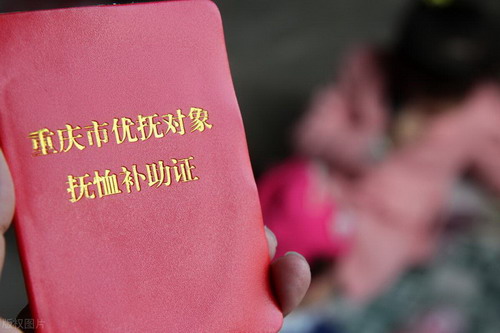 重庆市优抚对象
抚恤补助证
版权图片